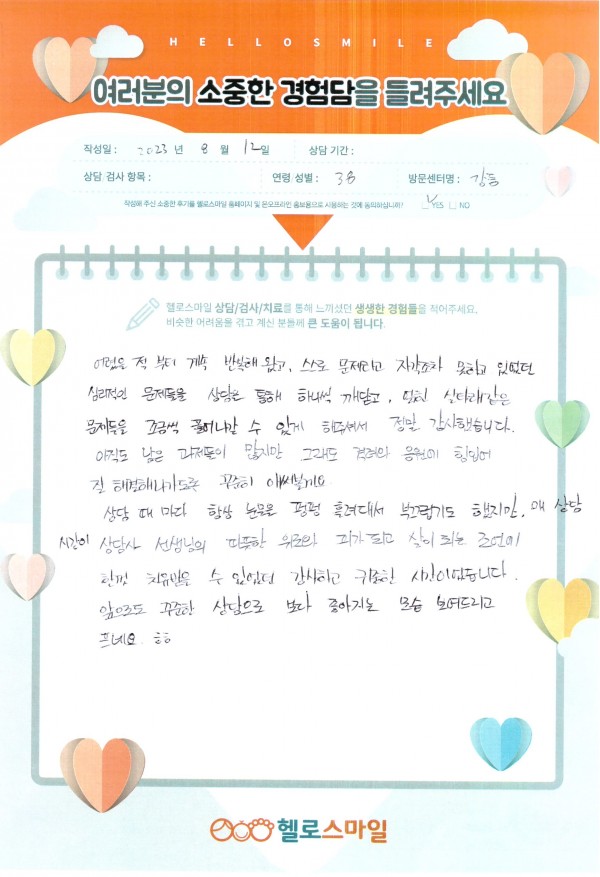 HELLOSMILE
여러분의 소중한 경험담을 들려주세요
작성일 : 2023 년 8 월 12일 상담 기간 :
상담 검사 항목 : 연령 성별 : 38 방문센터명 : 강동
작성해 주신 소중한 후기를 헬로스마일 홈페이지 및 온오프라인 홍보용으로 사용하는 것에 동의하십니까? ☑YES ☐ NO
헬로스마일 상담/검사/치료를 통해 느끼셨던 생생한 경험들을 적어주세요.
비슷한 어려움을 겪고 계신 분들께 큰 도움이 됩니다.
어렸을 적 부터 계속 반복해 왔고, 스스로 문제라고 자각조차 못하고 있었던
심리적인 문제들을 상담을 통해 하나씩 깨닫고, 엉킨 실타래같은
문제들을 조금씩 풀어나갈 수 있게 해주셔서 정말 감사했습니다.
아직도 남은 과제들이 많지만 그래도 격려와 응원에 힘입어
잘 해결해나가도록 꾸준히 애써볼게요
상담 때 마다 항상 눈물을 펑펑 흘려대서 부끄럽기도 했지만, 매 상담
시간이 상담사 선생님의 따뜻한 위로와 피가 되고 살이 되는 조언에
한껏 치유받을 수 있었던 감사하고 귀중한 시간이었습니다.
앞으로도 꾸준한 상담으로 보다 좋아지는 모습 보여드리고
프네요 ㅎㅎ
헬로스마일